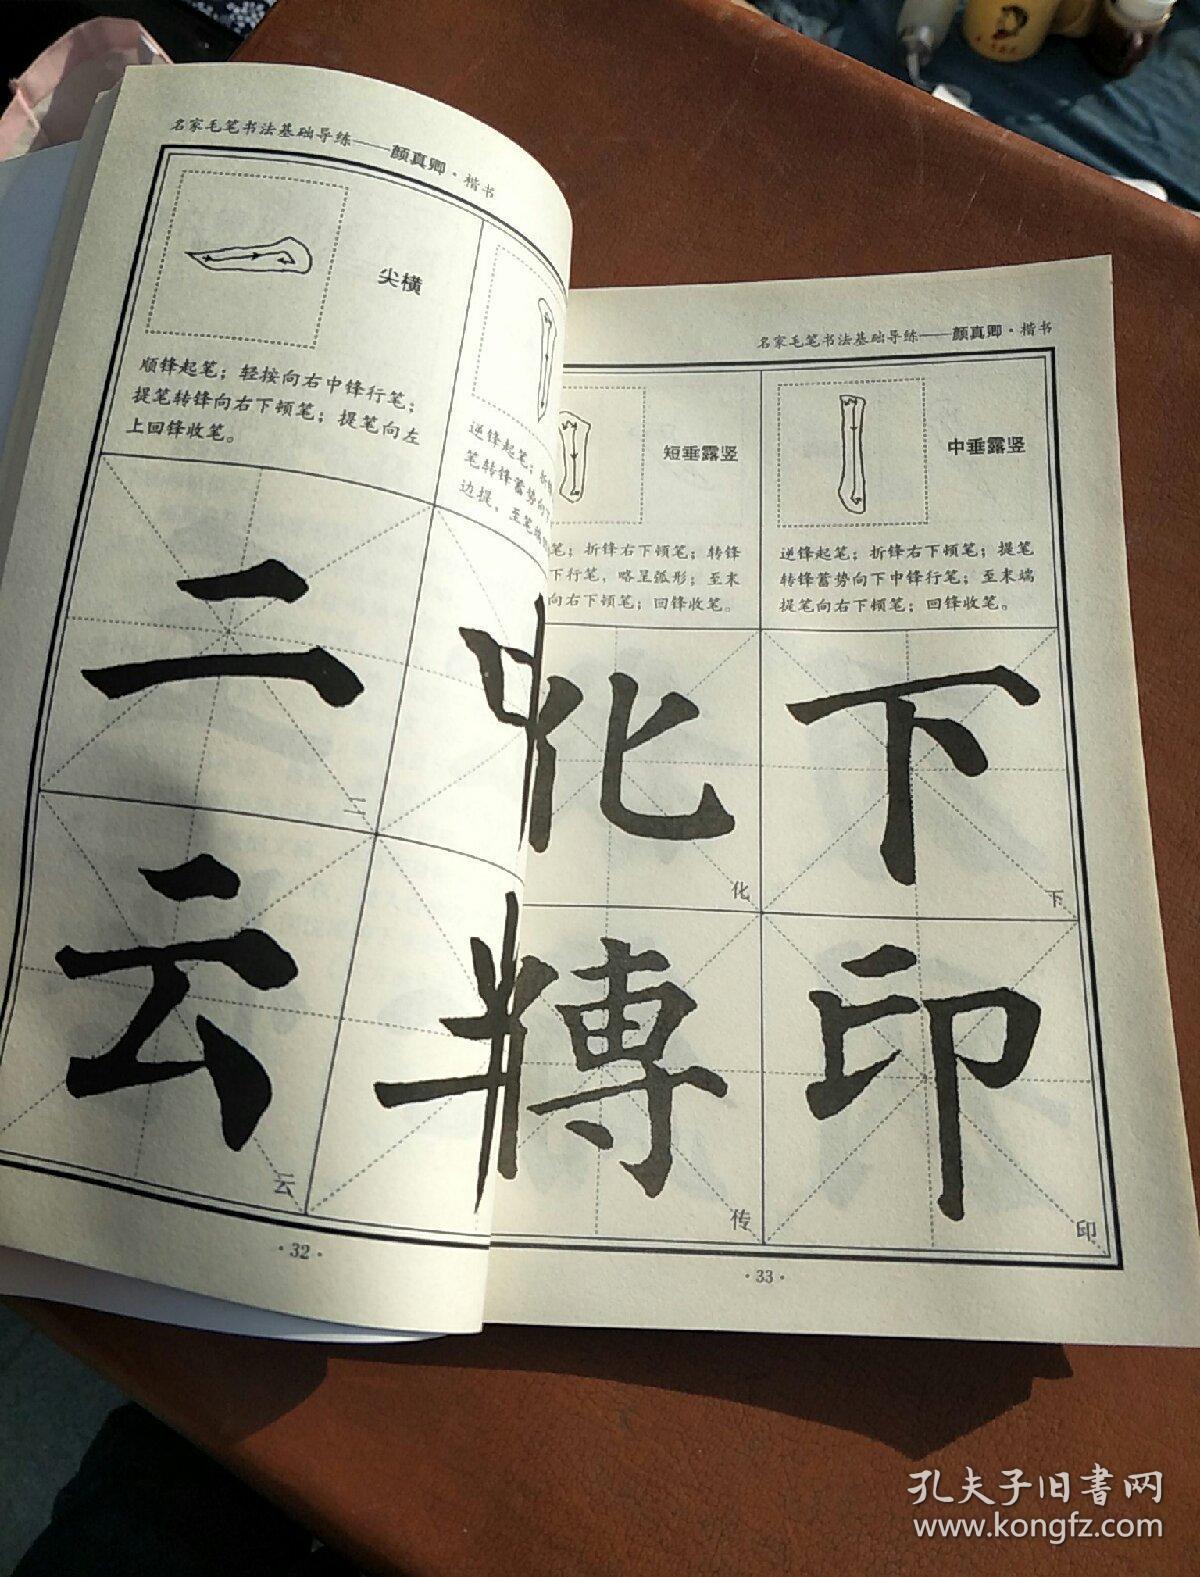 名家毛笔书法基础导练——颜真卿·楷书
尖横
顺锋起笔；轻按向右中锋行笔；
提笔转锋向右下顿笔；提笔向左
上回锋收笔。
逆锋起笔；
笔转锋蓄势向
二
二
云
云
·32·
名家毛笔书法基础导练——颜真卿·楷书
短垂露竖
笔；折锋右下顿笔；转锋
下行笔，略呈弧形；至末
向右下顿笔；回锋收笔。
中垂露竖
逆锋起笔；折锋右下顿笔；提笔
转锋蓄势向下中锋行笔；至末端
提笔向右下顿笔；回锋收笔。
化
化
下
下
傳
传
印
印
·33·
孔夫子旧书网
www.kongfz.com